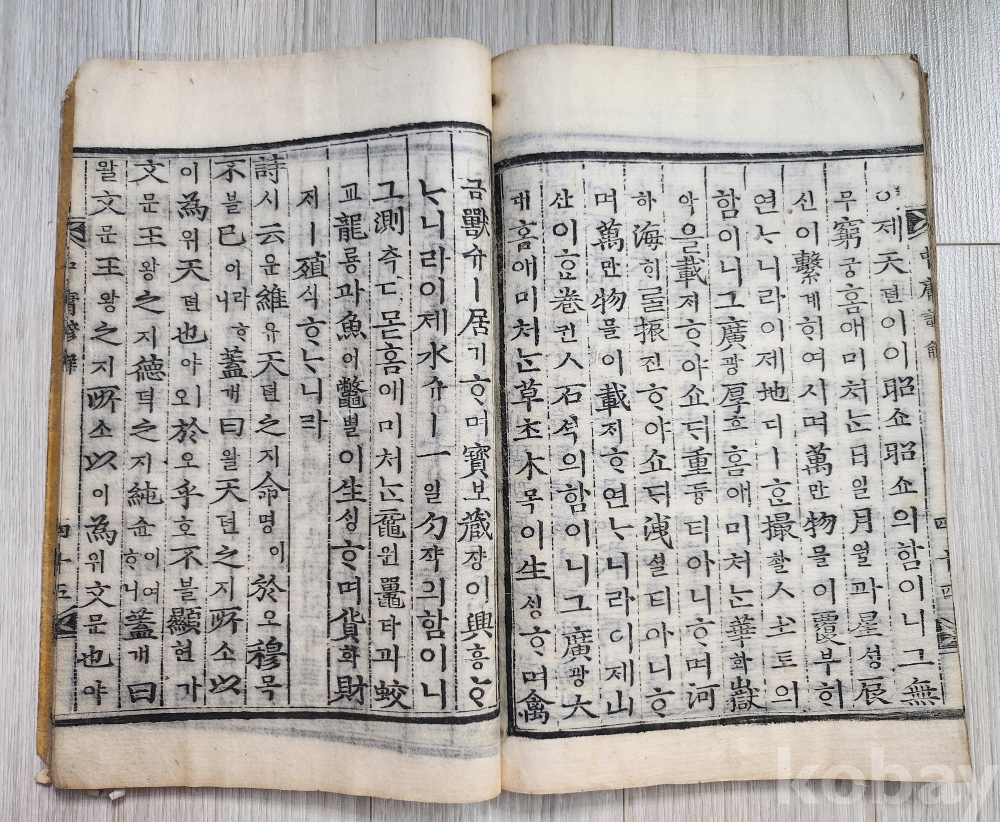 中庸諺解 四十四
이제天텬이이昭쇼昭쇼의함이니그無
무窮궁홈애미처ᄂᆞᆫ日일月월과星셩辰
신이繫계ᄒᆞ여시며萬만物믈이覆부ᄒᆞ
연ᄂᆞ니라이제地디ㅣᄒᆞᆫ撮촬ㅅ土토의
함이니그廣광厚후홈애미처ᄂᆞᆫ華화嶽
악을載ᄌᆡᄒᆞ야쇼ᄃᆡ重듕티아니ᄒᆞ며河
하海ᄒᆡᄅᆞᆯ振진ᄒᆞ야쇼ᄃᆡ洩셜티아니ᄒᆞ
며萬만物믈이載ᄌᆡᄒᆞ연ᄂᆞ니라이제山
산이ᄒᆞᆫ卷권ㅅ石셕의함이니그廣광大
대홈애미처ᄂᆞᆫ草초木목이生ᄉᆡᆼᄒᆞ며禽
금獸슈ㅣ居거ᄒᆞ며寶보藏장이興흥ᄒᆞ
ᄂᆞ니라이제水슈ㅣ一일勺쟉의함이니
그測측디몯홈애미처ᄂᆞᆫ黿원鼉타과蛟
교龍룡과魚어鼈별이生ᄉᆡᆼᄒᆞ며貨화財
ᄌᆡㅣ殖식ᄒᆞᄂᆞ니라
詩시云운維유天텬之지命명이於오穆목
不블已이니라ᄒᆞ蓋개曰왈天텬之지所소以
이爲위天텬也야ㅣ오於오乎호不블顯현가
文문王왕之지德덕之지純슌이여ᄒᆞ니蓋개曰
왈文문王왕之지所소以이爲위文문也야
中庸諺解 四十三
kobay